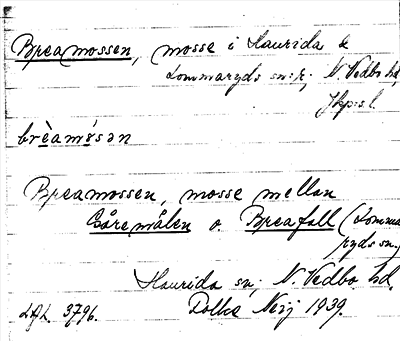 Breamossen, mosse i Haurida &
Lommaryds sn:r; N. Vedbo hd,
Jkp:s l.
brèamåsən
Breamossen, mosse mellan
Båremålen o Breafall (Lomma
ryds sn.)
Haurida sn; N. Vedbo hd.
3796. 1939.